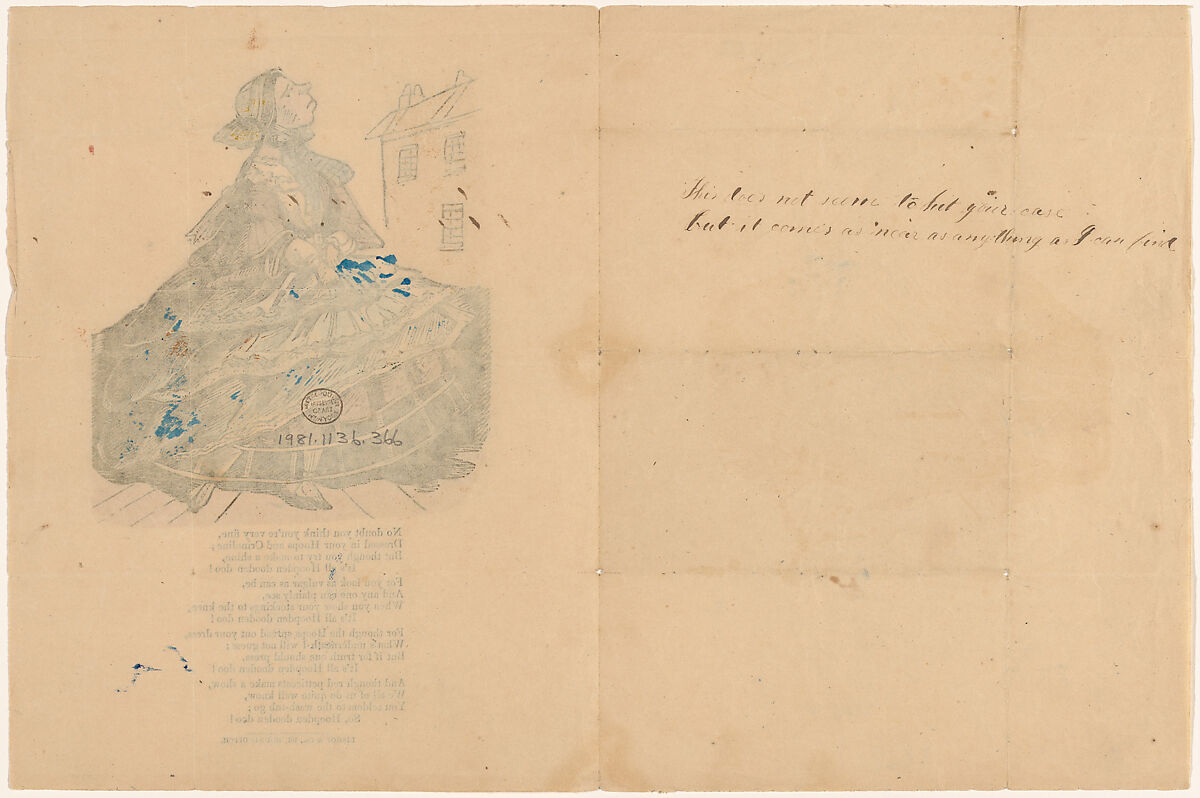 This does not seem to hit your case
but it comes as near as anything as I can find
1981.1136.366
No doubt you think you're very fine,
Dressed in your Hoops and Crinoline;
But though you try to make a shine,
It's all Hoopden dooden doo!
For you look as vulgar as can be,
And any one can plainly see,
When you show your stockings to the knee,
It's all Hoopden dooden doo!
For though the Hoops spread out your dress,
What's underneath I will not guess;
But if for truth one should press,
It's all Hoopden dooden doo!
And though red petticoats make a show,
We all of us do quite well know,
You seldom to the wash-tub go;
So, Hoopden dooden doo!